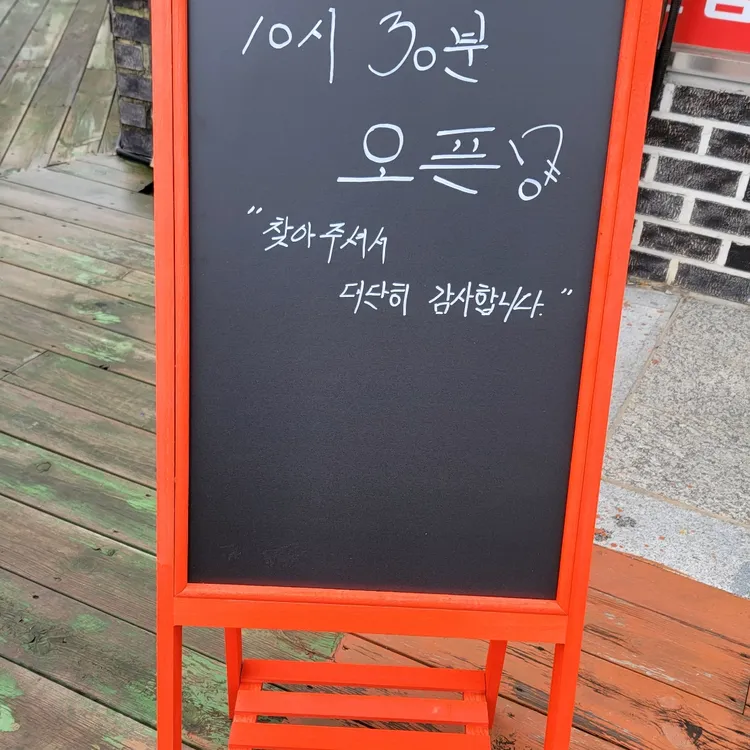 10시 30분
오픈
"찾아주셔서
대단히 감사합니다."